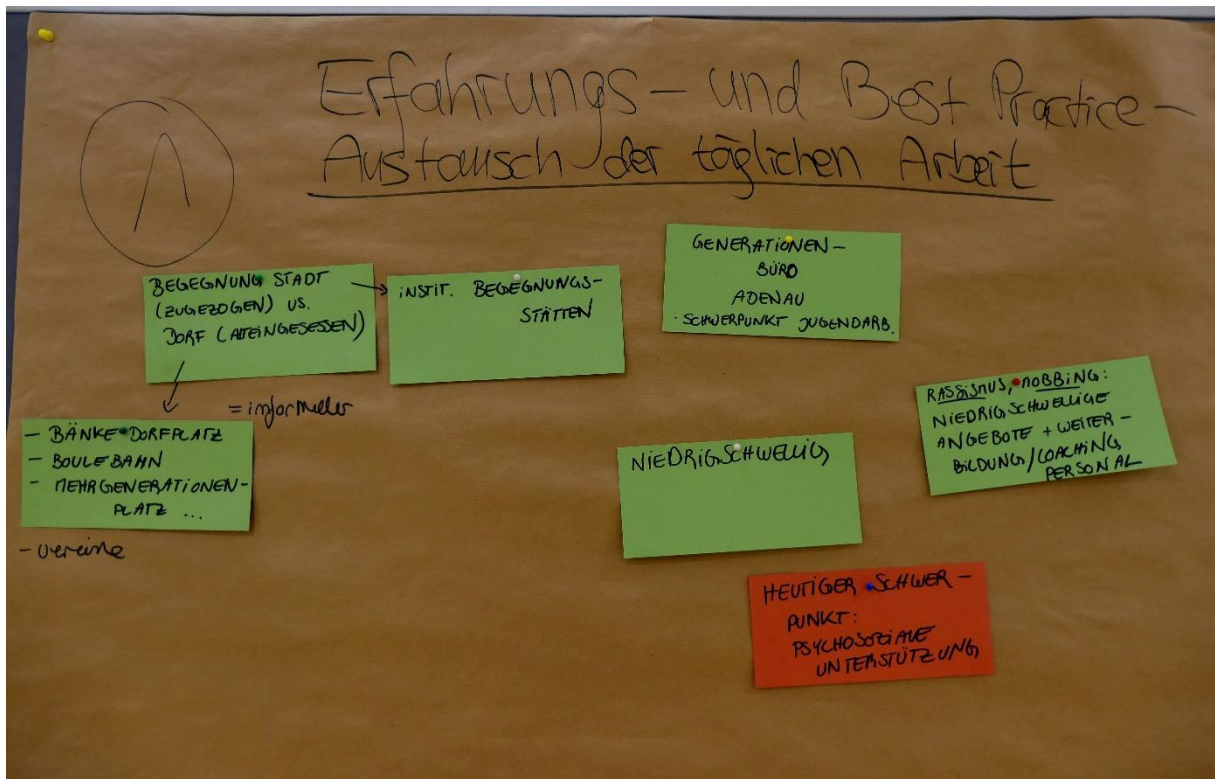 1
Erfahrungs- und Best Practice-
Austausch der täglichen Arbeit
BEGEGNUNG STADT
(ZUGEZOGEN) VS.
DORF (ALTEINGESESSEN)
INSTIT. BEGEGNUNGS-
STÄTTEN
GENERATIONEN-
BÜRO
ADENAU
- SCHWERPUNKT JUGENDARB.
= informeller
- BÄNKE DORFPLATZ
- BOULEBAHN
- MEHRGENERATIONEN-
PLATZ ...
- vereine
NIEDRIGSCHWELLIG
RASSISMUS, MOBBING:
NIEDRIGSCHWELLIGE
ANGEBOTE + WEITER-
BILDUNG/COACHING
PERSONAL
HEUTIGER SCHWER-
PUNKT:
PSYCHOSOZIALE
UNTERSTÜTZUNG